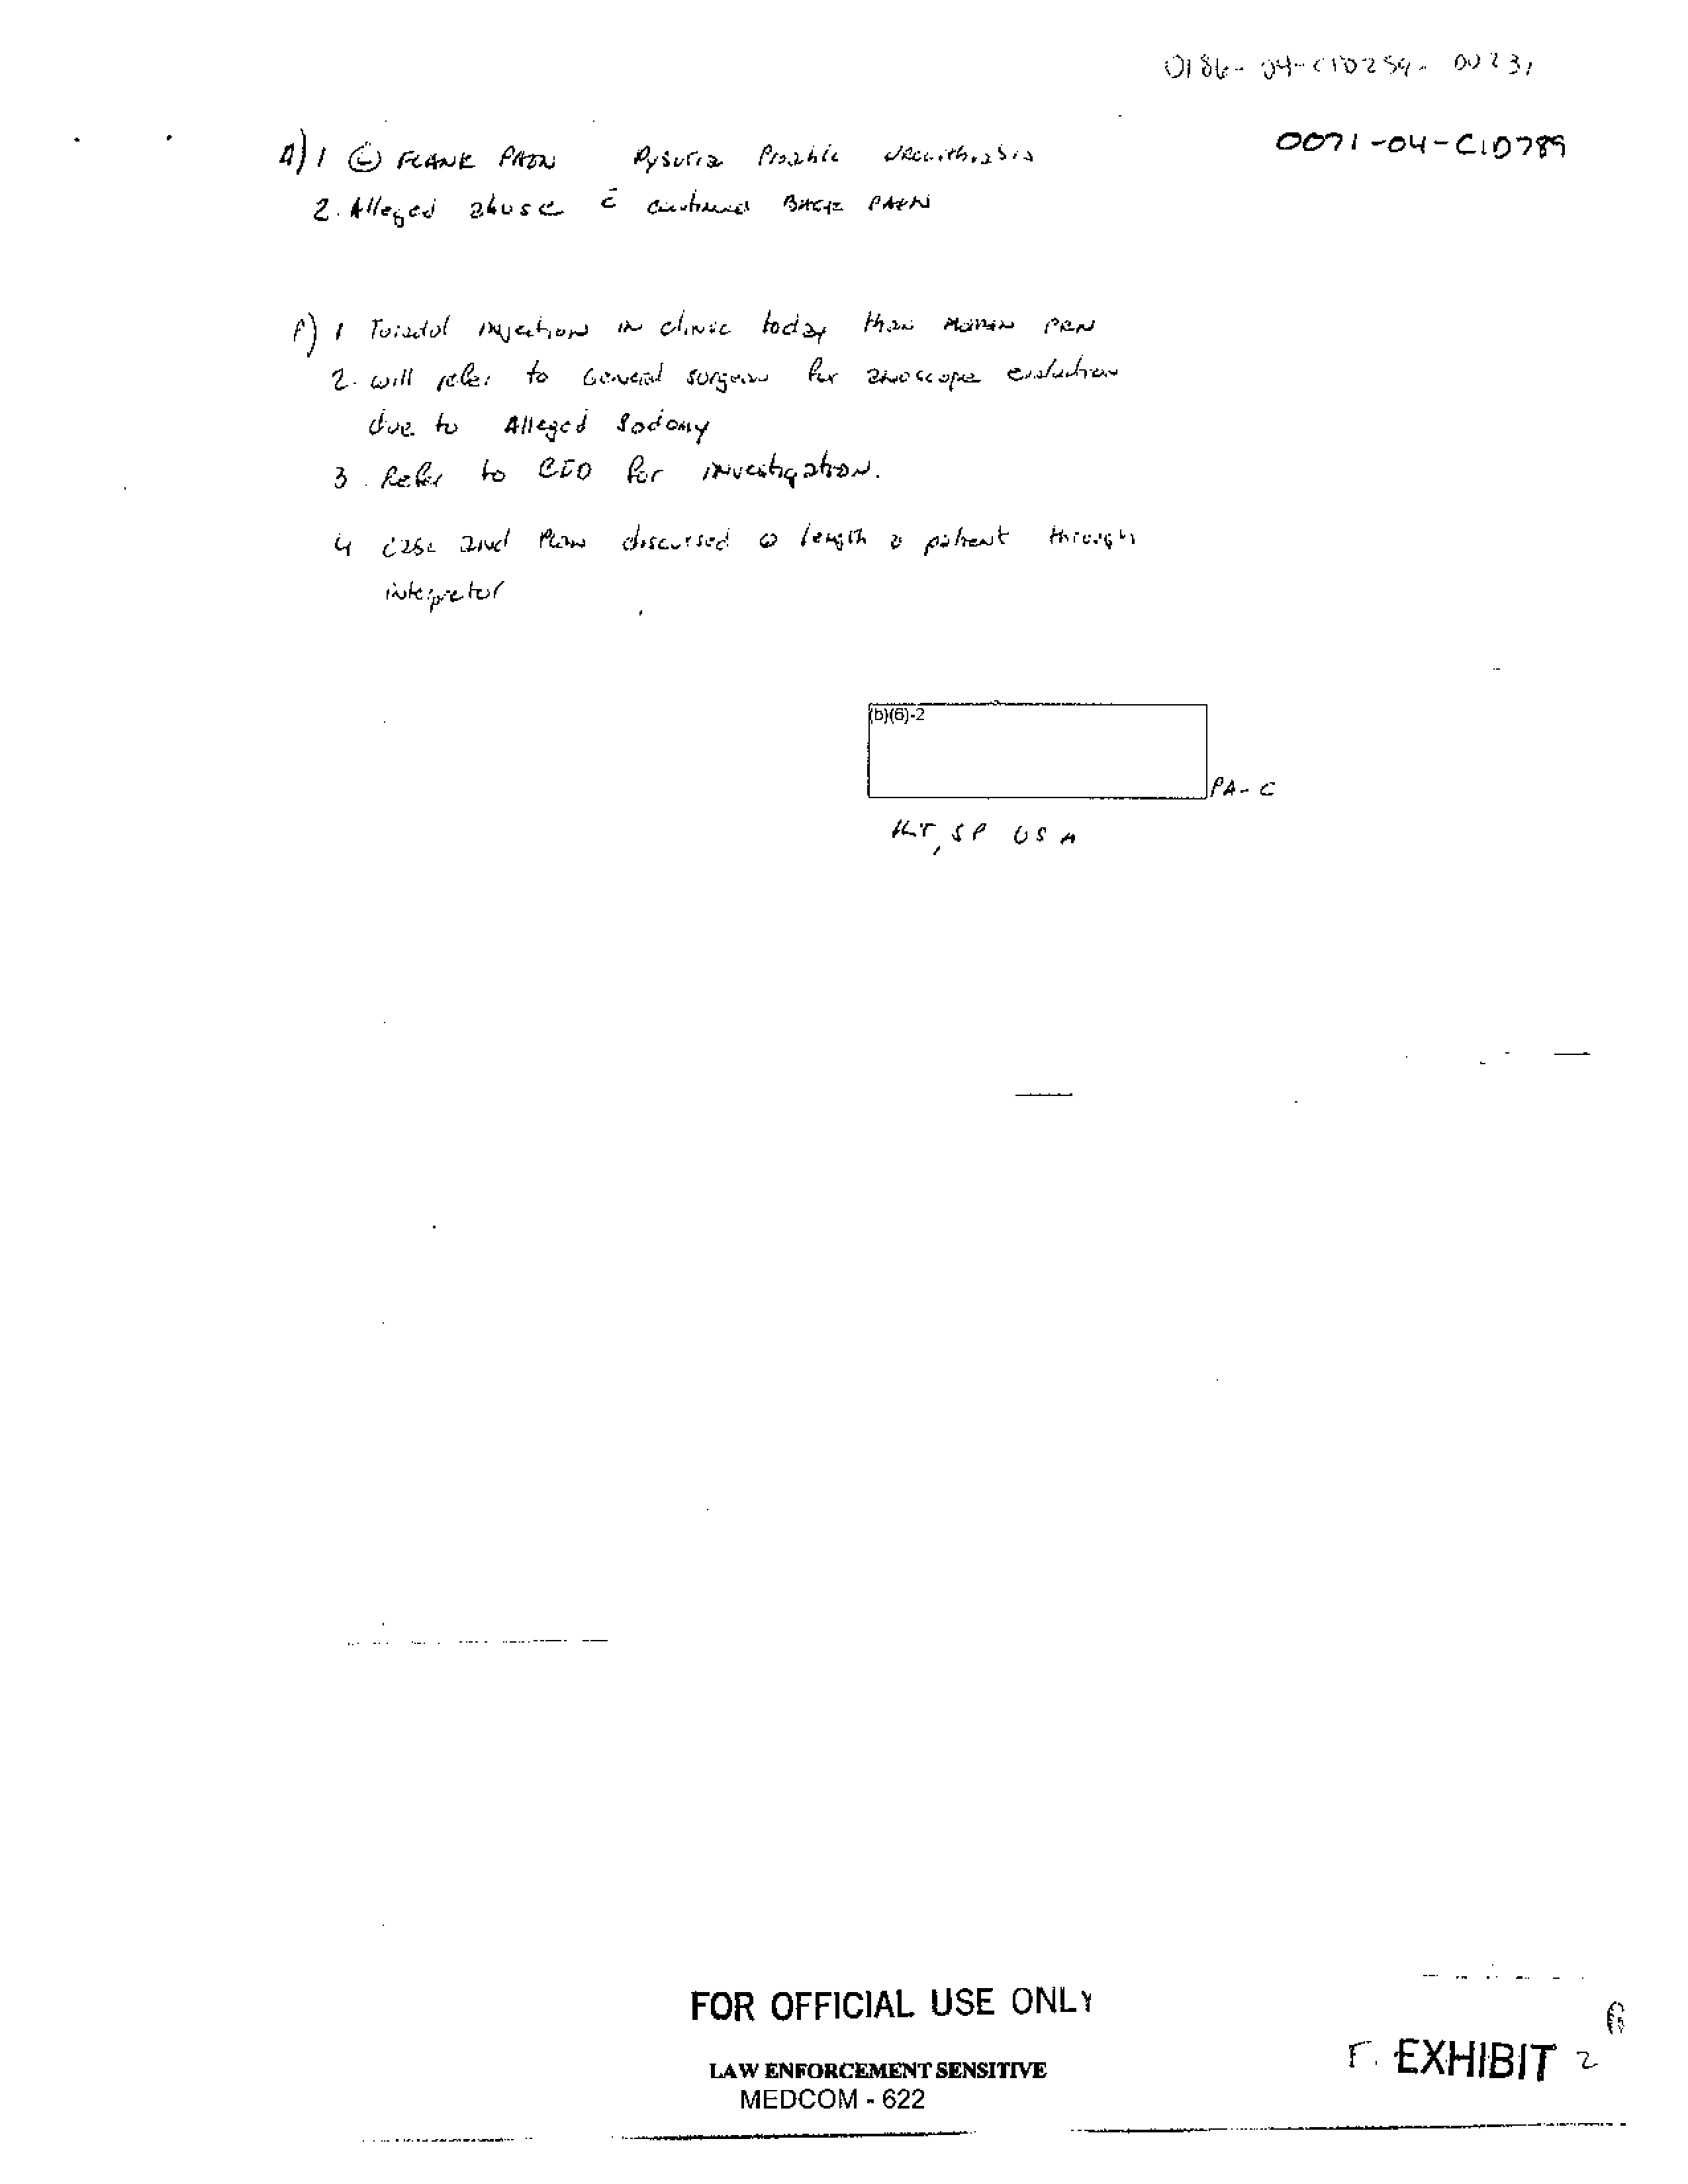 0186-04-CID259-00231
0071-04-CID789
A) 1 Ⓛ FLANK PAIN Dysuria Possible
2. Alleged abuse c̄ continued BACK PAIN
P) 1 Toradol injection in clinic today than Motrin PRN
2. will refer to General surgeon for anoscope evaluation
due to Alleged Sodomy
3. Refer to CID for investigation.
4 case and Plan discussed @ length patient through
intepretor
(b)(6)-2
PA-C
SP USA
FOR OFFICIAL USE ONLY
LAW ENFORCEMENT SENSITIVE
MEDCOM - 622
EXHIBIT 2